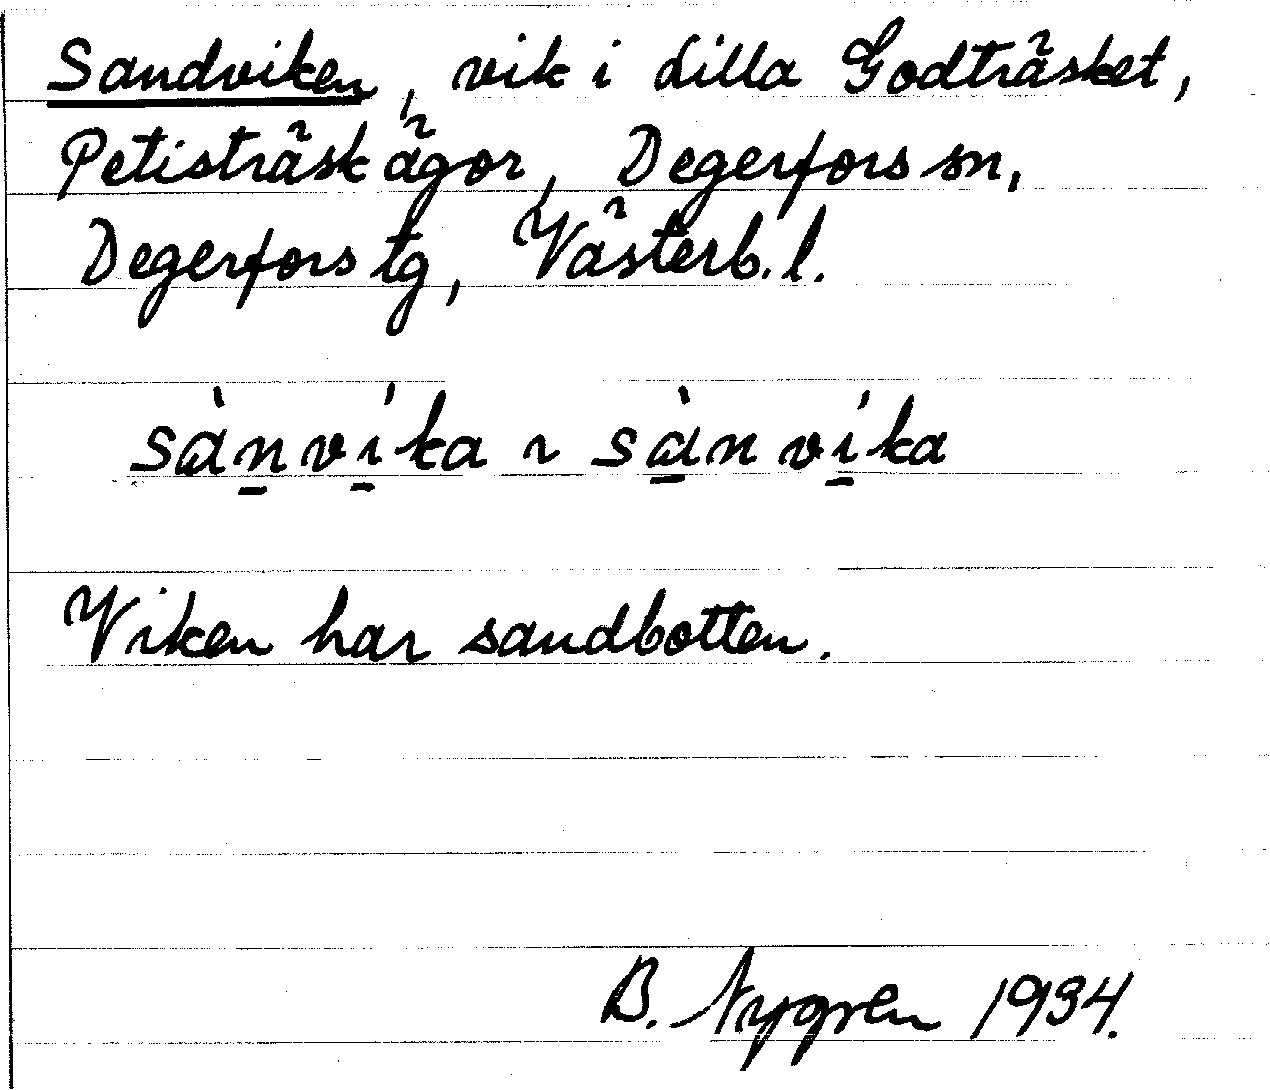 Sandviken, vik i Lilla Godträsket,
Petisträskägor, Degerfors sn,
Degerfors tg, Västerb. l.
sàn̲ví̲ka ~ sà̲nví̲ka
Viken har sandbotten.
B. Nygren 1934.